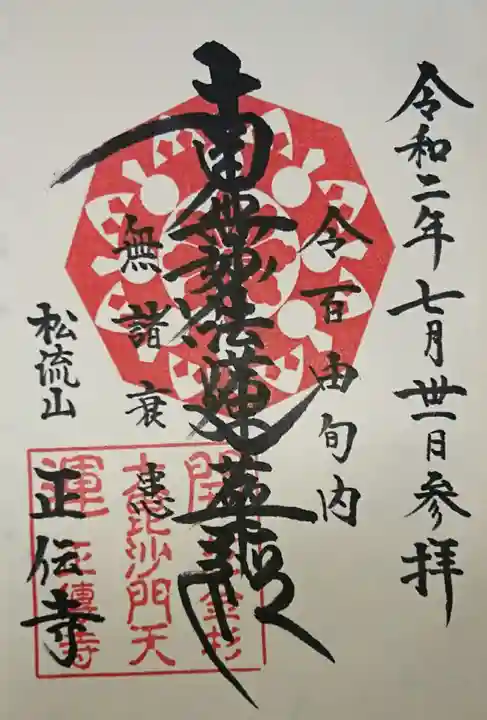 令和二年七月卅一日参拝
令百由旬内
南無妙法蓮華経
無諸衰患
松流山
正伝寺
開運
金杉
毘沙門天
正傳寺